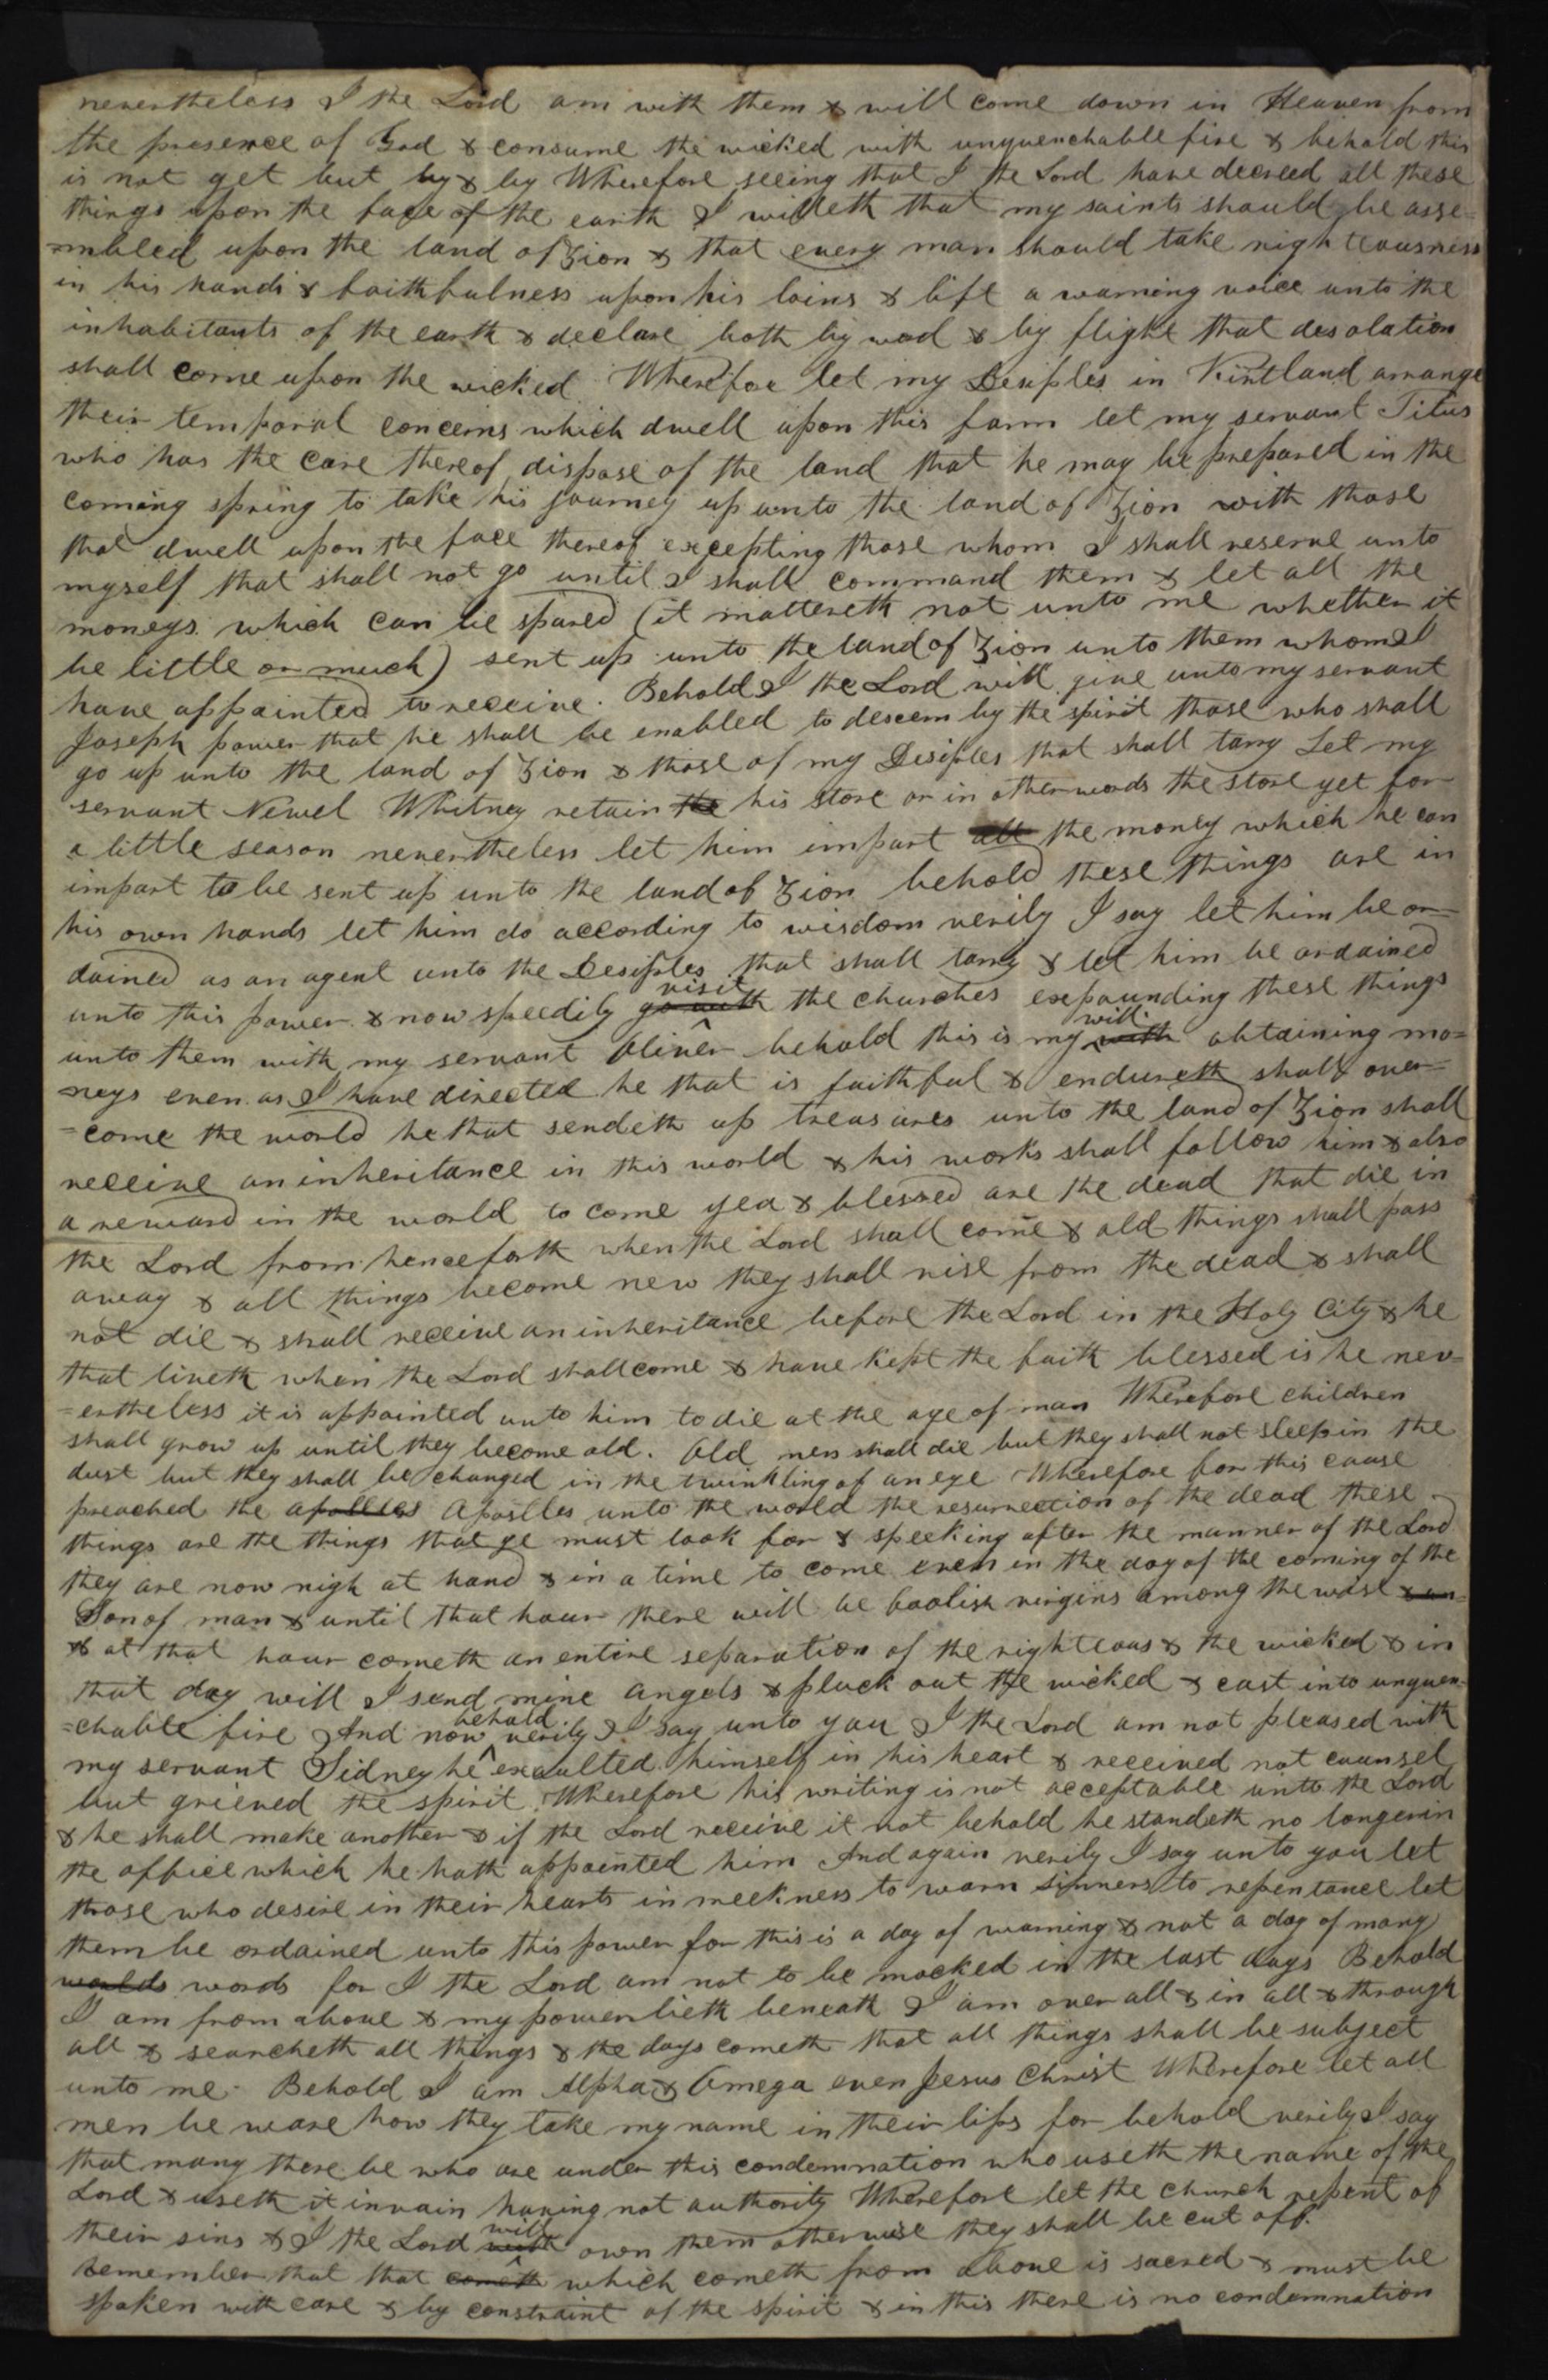 nevertheless I the Lord am with them & will come down in Heaven from
the presence of God & consume the wicked with unquenchable fire & behold this
is not yet but by & by Wherefore seeing that I the Lord have decreed all these
things upon the face of the earth I willeth that my saints should be asse=
=mbled upon the land of Zion & that every man should take righteousness
in his hands & faithfulness upon his loins & lift a warning voice unto the
inhabitants of the earth & declare both by word & by flight that desolation
shall come upon the wicked Wherefore let my Desiples in Kirtland arrange
their temporal concerns which dwell upon this farm let my servant Titus
who has the care thereof dispose of the land that he may be prepared in the
coming spring to take his journey up unto the land of Zion with those
that dwell upon the face thereof excepting those whom I shall reserve unto
myself that shall not go until I shall command them & let all the
moneys which can be spared (it mattereth not unto me whether it
be little or much) sent up unto the land of Zion unto them whom I
have appointed to receive. Behold I the Lord will give unto my servant
Joseph power that he shall be enabled to descern by the spirit those who shall
go up unto the land of Zion & those of my Desiples that shall tarry Let my
servant Newel Whitney retain the his store or in other words the store yet for
a little season nevertheless let him impart all the money which he can
impart to be sent up unto the land of Zion behold these things are in
his own hands let him do according to wisdom verily I say let him be or=
dained as an agent unto the Desiples that shall tarry & let him be ordained
unto this power & now speedily go with visit the churches expounding these things
unto them with my servant Oliver behold this is my with will obtaining mo=
=neys even as I have directed he that is faithful & endureth shall over=
=come the world he that sendeth up treasures unto the land of Zion shall
receive an inheritance in this world & his works shall follow him & also
a reward in the world to come yea & blessed are the dead that die in
the Lord from henceforth when the Lord shall come & old things shall pass
away & all things become new they shall rise from the dead & shall
not die & shall receive an inheritance before the Lord in the Holy City & he
that liveth when the Lord shall come & have kept the faith blessed is he nev=
=ertheless it is appointed unto him to die at the age of man Wherefore children
shall grow up until they become old. Old men shall die but they shall not sleep in the
dust but they shall be changed in the twinkling of an eye Wherefore for this cause
preached the Apostles unto the world the resurrection of the dead these
things are the things that ye must look for & speeking after the manner of the Lord
they are now nigh at hand & in a time to come even in the day of the coming of the
Son of man & until that hour there will be foolish virgins among the wise
& at that hour cometh an entire separation of the righteous & the wicked & in
that day will I send mine angels & pluck out the wicked & cast into unquen=
=chable fire And now behold verily I say unto you I the Lord am not pleased with
my servant Sidney he exaulted himself in his heart & received not counsel
but grieved the spirit Wherefore his writing is not acceptable unto the Lord
& he shall make another & if the Lord receive it not behold he standeth no longer in
the office which he hath appointed him And again verily I say unto you let
those who desire in their hearts in meekness to warn sinners to repentance let
them be ordained unto this power for this is a day of warning & not a day of many
worlds words for I the Lord am not to be mocked in the last days Behold
I am from above & my power lieth beneath I am over all & in all & through
all & searcheth all things & the days cometh that all things shall be subject
unto me. Behold I am Alpha & Omega even Jesus Christ Wherefore let all
men be ware how they take my name in their lips for behold verily I say
that many there be who are under this condemnation who useth the name of the
Lord & useth it in vain having not authority Wherefore let the church repent of
their sins & I the Lord with will own them otherwise they shall be cut off.
remember that that cometh which cometh from above is sacred & must be
spoken with care & by constraint of the spirit & in this there is no condemnation